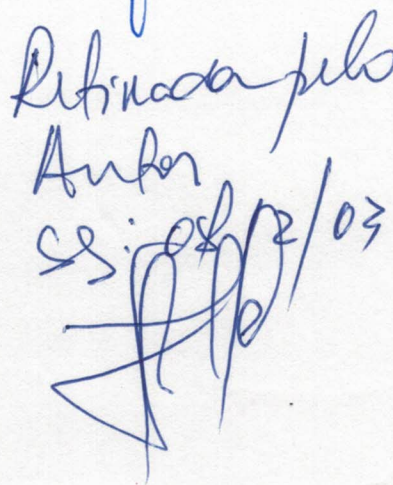 Retirada pelo
Autor
SS: 08/12/03